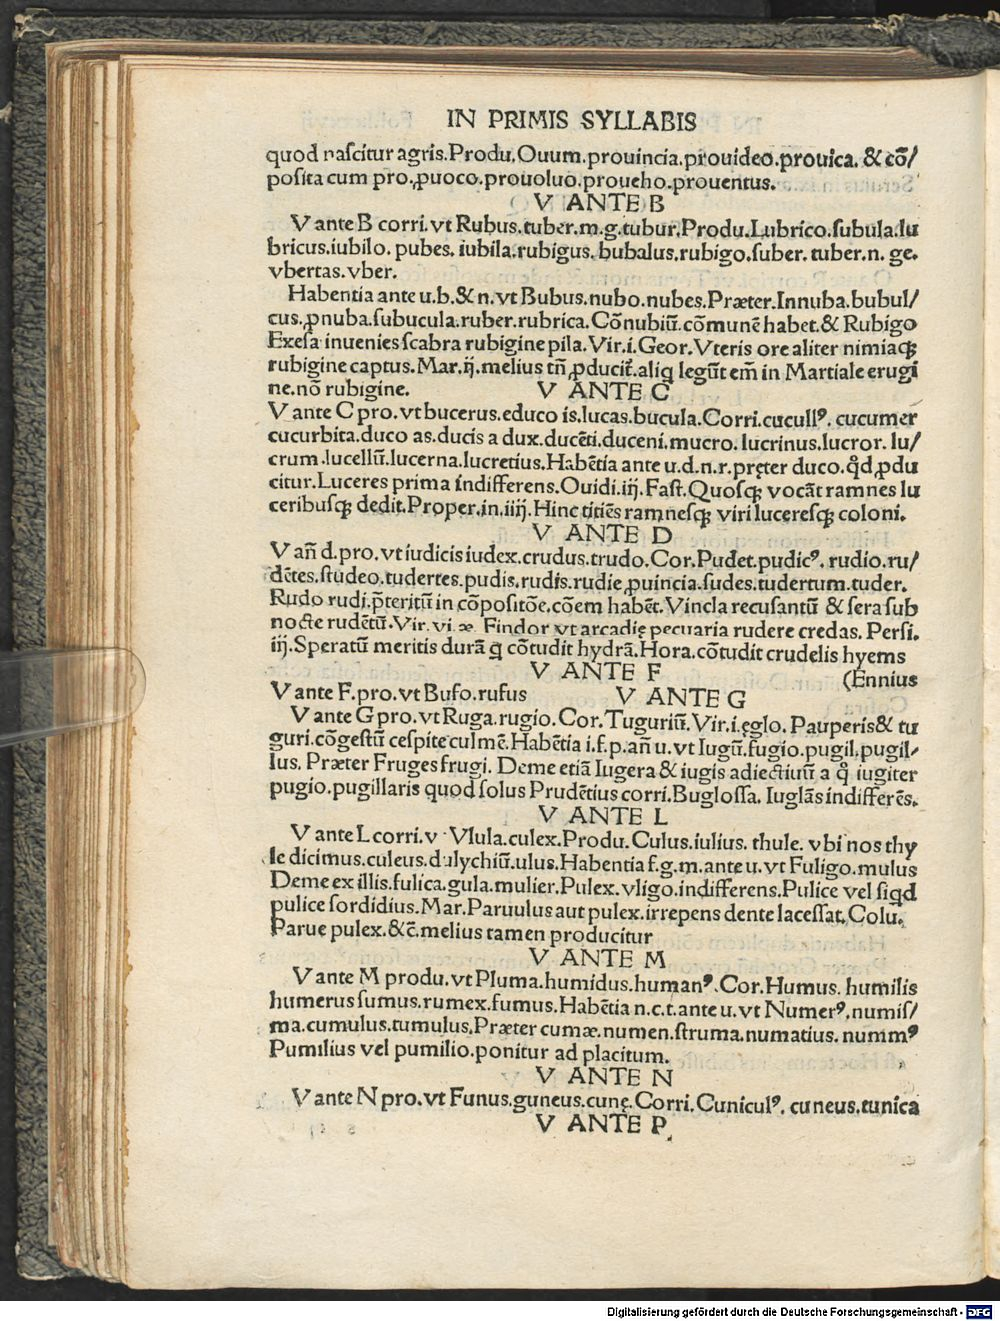 IN PRIMIS SYLLABIS
quod nascitur agris.Produ.Ouum.prouincia.prouideo.prouica. & cō/
posita cum pro.ꝓuoco.prouoluo.proueho.prouentus.
V ANTE B
V ante B corri.vt Rubus.tuber.m.g.tubur.Produ.Lubrico.subula.lu
bricus.iubilo. pubes. iubila.rubigus. bubalus.rubigo.suber. tuber.n. ge.
vbertas.vber.
Habentia ante u.b.& n.vt Bubus.nubo.nubes.Præter.Innuba.bubul/
cus.ꝓnuba.subucula.ruber.rubrica. Cōnubiū.cōmunē habet.& Rubigo
Exesa inuenies scabra rubigine pila. Vir.i.Geor.Vteris ore aliter nimiaqꝫ
rubigine captus. Mar.ij.melius tñ ꝓducit̄.aliq̄ legūt em̄ in Martiale erugi
ne.nō rubigine.
V ANTE C
V ante C pro.vt bucerus.educo is.lucas.bucula.Corri.cucullꝰ. cucumer
cucurbita.duco as.ducis a dux.ducēti.duceni.mucro.lucrinus.lucror. lu/
crum.lucellū.lucerna.lucretius.Habētia ante u.d.n.r.pręter duco. qd̄ ꝓdu
citur.Luceres prima indifferens.Ouidi.iij. Fast.Quosqꝫ vocāt ramnes lu
ceribusqꝫ dedit.Proper.in.iiij.Hinc titiēs ramnesqꝫ viri luceresqꝫ coloni.
V ANTE D
V añ d.pro.vt iudicis iudex.crudus.trudo.Cor.Pudet.pudicꝰ. rudio.ru/
dētes.studeo.tudertes.pudis.rudis.rudie ꝓuincia.sudes.tudertum.tuder.
Rudo rudi.p̄teritū in cōpositōe.cōem habēt.Vincla recusantū & sera sub
nocte rudētū.Vir. vi.æ. Findor vt arcadię pecuaria rudere credas. Persi.
iij.Speratū meritis durā q̄ cōtudit hydrā.Hora.cōtudit crudelis hyems
V ANTE F (Ennius
V ante F.pro.vt Bufo.rufus
V ANTE G
V ante G pro.vt Ruga.rugio.Cor.Tuguriū.Vir.i.ęglo. Pauperis & tu
guri.cōgestū cespite culmē.Habētia i.f.p.añ u.vt Iugū.fugio.pugil.pugil-
lus. Præter Fruges frugi. Deme etiā Iugera & iugis adiectiuū a q̊ iugiter
pugio.pugillaris quod solus Prudētius corri.Buglossa. Iuglās indifferēs.
V ANTE L
V ante L corri.v Vlula.culex.Produ.Culus.iulius. thule. vbi nos thy
le dicimus.culeus.dulychiū.ulus.Habentia f.g.m.ante u.vt Fuligo.mulus
Deme ex illis.fulica.gula.mulier.Pulex.vligo.indifferens.Pulice vel siqd
pulice sordidius.Mar.Paruulus aut pulex.irrepens dente lacessat.Colu.
Parue pulex.&c̄.melius tamen producitur
V ANTE M
V ante M produ.vt Pluma.humidus.humanꝰ.Cor.Humus. humilis
humerus sumus.rumex.fumus.Habētia n.c.t.ante u.vt Numerꝰ.numis/
ma.cumulus.tumulus.Præter cumæ.numen.struma.numatius. nummꝰ
Pumilius vel pumilio.ponitur ad placitum.
V ANTE N
V ante N pro.vt Funus.guneus.cunę.Corri.Cuniculꝰ. cuneus.tunica
V ANTE P.
Digitalisierung gefördert durch die Deutsche Forschungsgemeinschaft - DFG